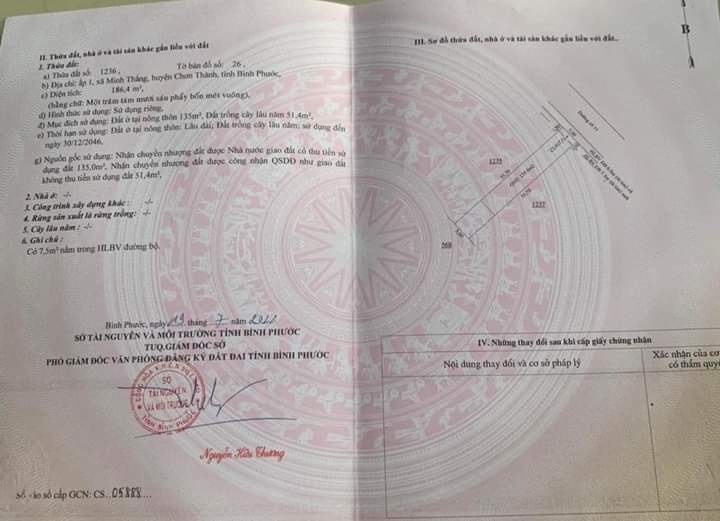 II. Thửa đất, nhà ở và tài sản khác gắn liền với đất
1. Thửa đất:
a) Thửa đất số: 1236, Tờ bản đồ số: 26,
b) Địa chỉ: ấp 1, xã Minh Thắng, huyện Chơn Thành, tỉnh Bình Phước,
c) Diện tích: 186,4 m²,
(bằng chữ: Một trăm tám mươi sáu phẩy bốn mét vuông),
d) Hình thức sử dụng: Sử dụng riêng,
đ) Mục đích sử dụng: Đất ở tại nông thôn 135m², Đất trồng cây lâu năm 51,4m²,
e) Thời hạn sử dụng: Đất ở tại nông thôn: Lâu dài; Đất trồng cây lâu năm: sử dụng đến
ngày 30/12/2046,
g) Nguồn gốc sử dụng: Nhận chuyển nhượng đất được Nhà nước giao đất có thu tiền sử
dụng đất 135,0m², Nhận chuyển nhượng đất được công nhận QSDĐ như giao đất
không thu tiền sử dụng đất 51,4m²,
2. Nhà ở: -/-
3. Công trình xây dựng khác: -/-
4. Rừng sản xuất là rừng trồng: -/-
5. Cây lâu năm: -/-
6. Ghi chú:
Có 7,5m² nằm trong HLBV đường bộ.
Bình Phước, ngày 19 tháng 7 năm 2021
SỞ TÀI NGUYÊN VÀ MÔI TRƯỜNG TỈNH BÌNH PHƯỚC
TUQ.GIÁM ĐỐC SỞ
PHÓ GIÁM ĐỐC VĂN PHÒNG ĐĂNG KÝ ĐẤT ĐAI TỈNH BÌNH PHƯỚC
SỞ
TÀI NGUYÊN
VÀ MÔI TRƯỜNG
TỈNH BÌNH PHƯỚC
Nguyễn Hữu Thương
Số vào sổ cấp GCN: CS..05888...
III. Sơ đồ thửa đất, nhà ở và tài sản khác gắn liền với đất..
B
1235
1237
268
IV. Những thay đổi sau khi cấp giấy chứng nhận
Nội dung thay đổi và cơ sở pháp lý
Xác nhận của cơ
có thẩm quy